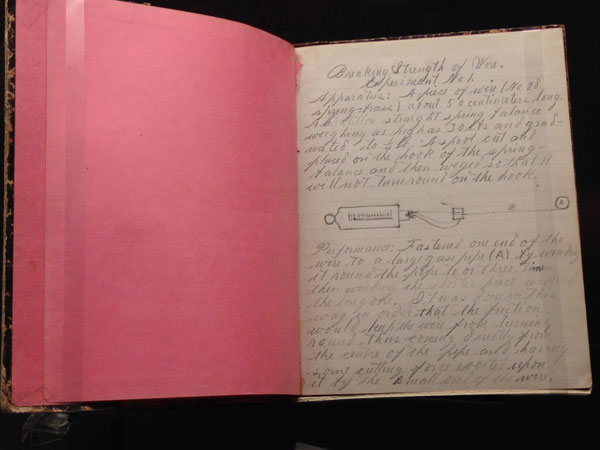 Breaking Strength of Wire.
Experiment No 1.
Apparatus: A piece of wire (No 28
spring-brass) about 50 centimeters long.
Also straight spring balance
weighing as high as 30 lbs and grad-
uated to ½ lb. A spool cut and
placed on the hook of the spring-
balance and then weged so that it
will not turn round on the hook.
A
Performance: Fastened one end of the
wire to a large gas pipe (A) by winding
it round the pipe two or three times
then winding the short piece around
the long one. It was done in this
way in order that the friction
would keep the wire from turning
round then coming directly from
the centre of the pipe and having
some cutting force exerted upon
it by the small end of the wire.